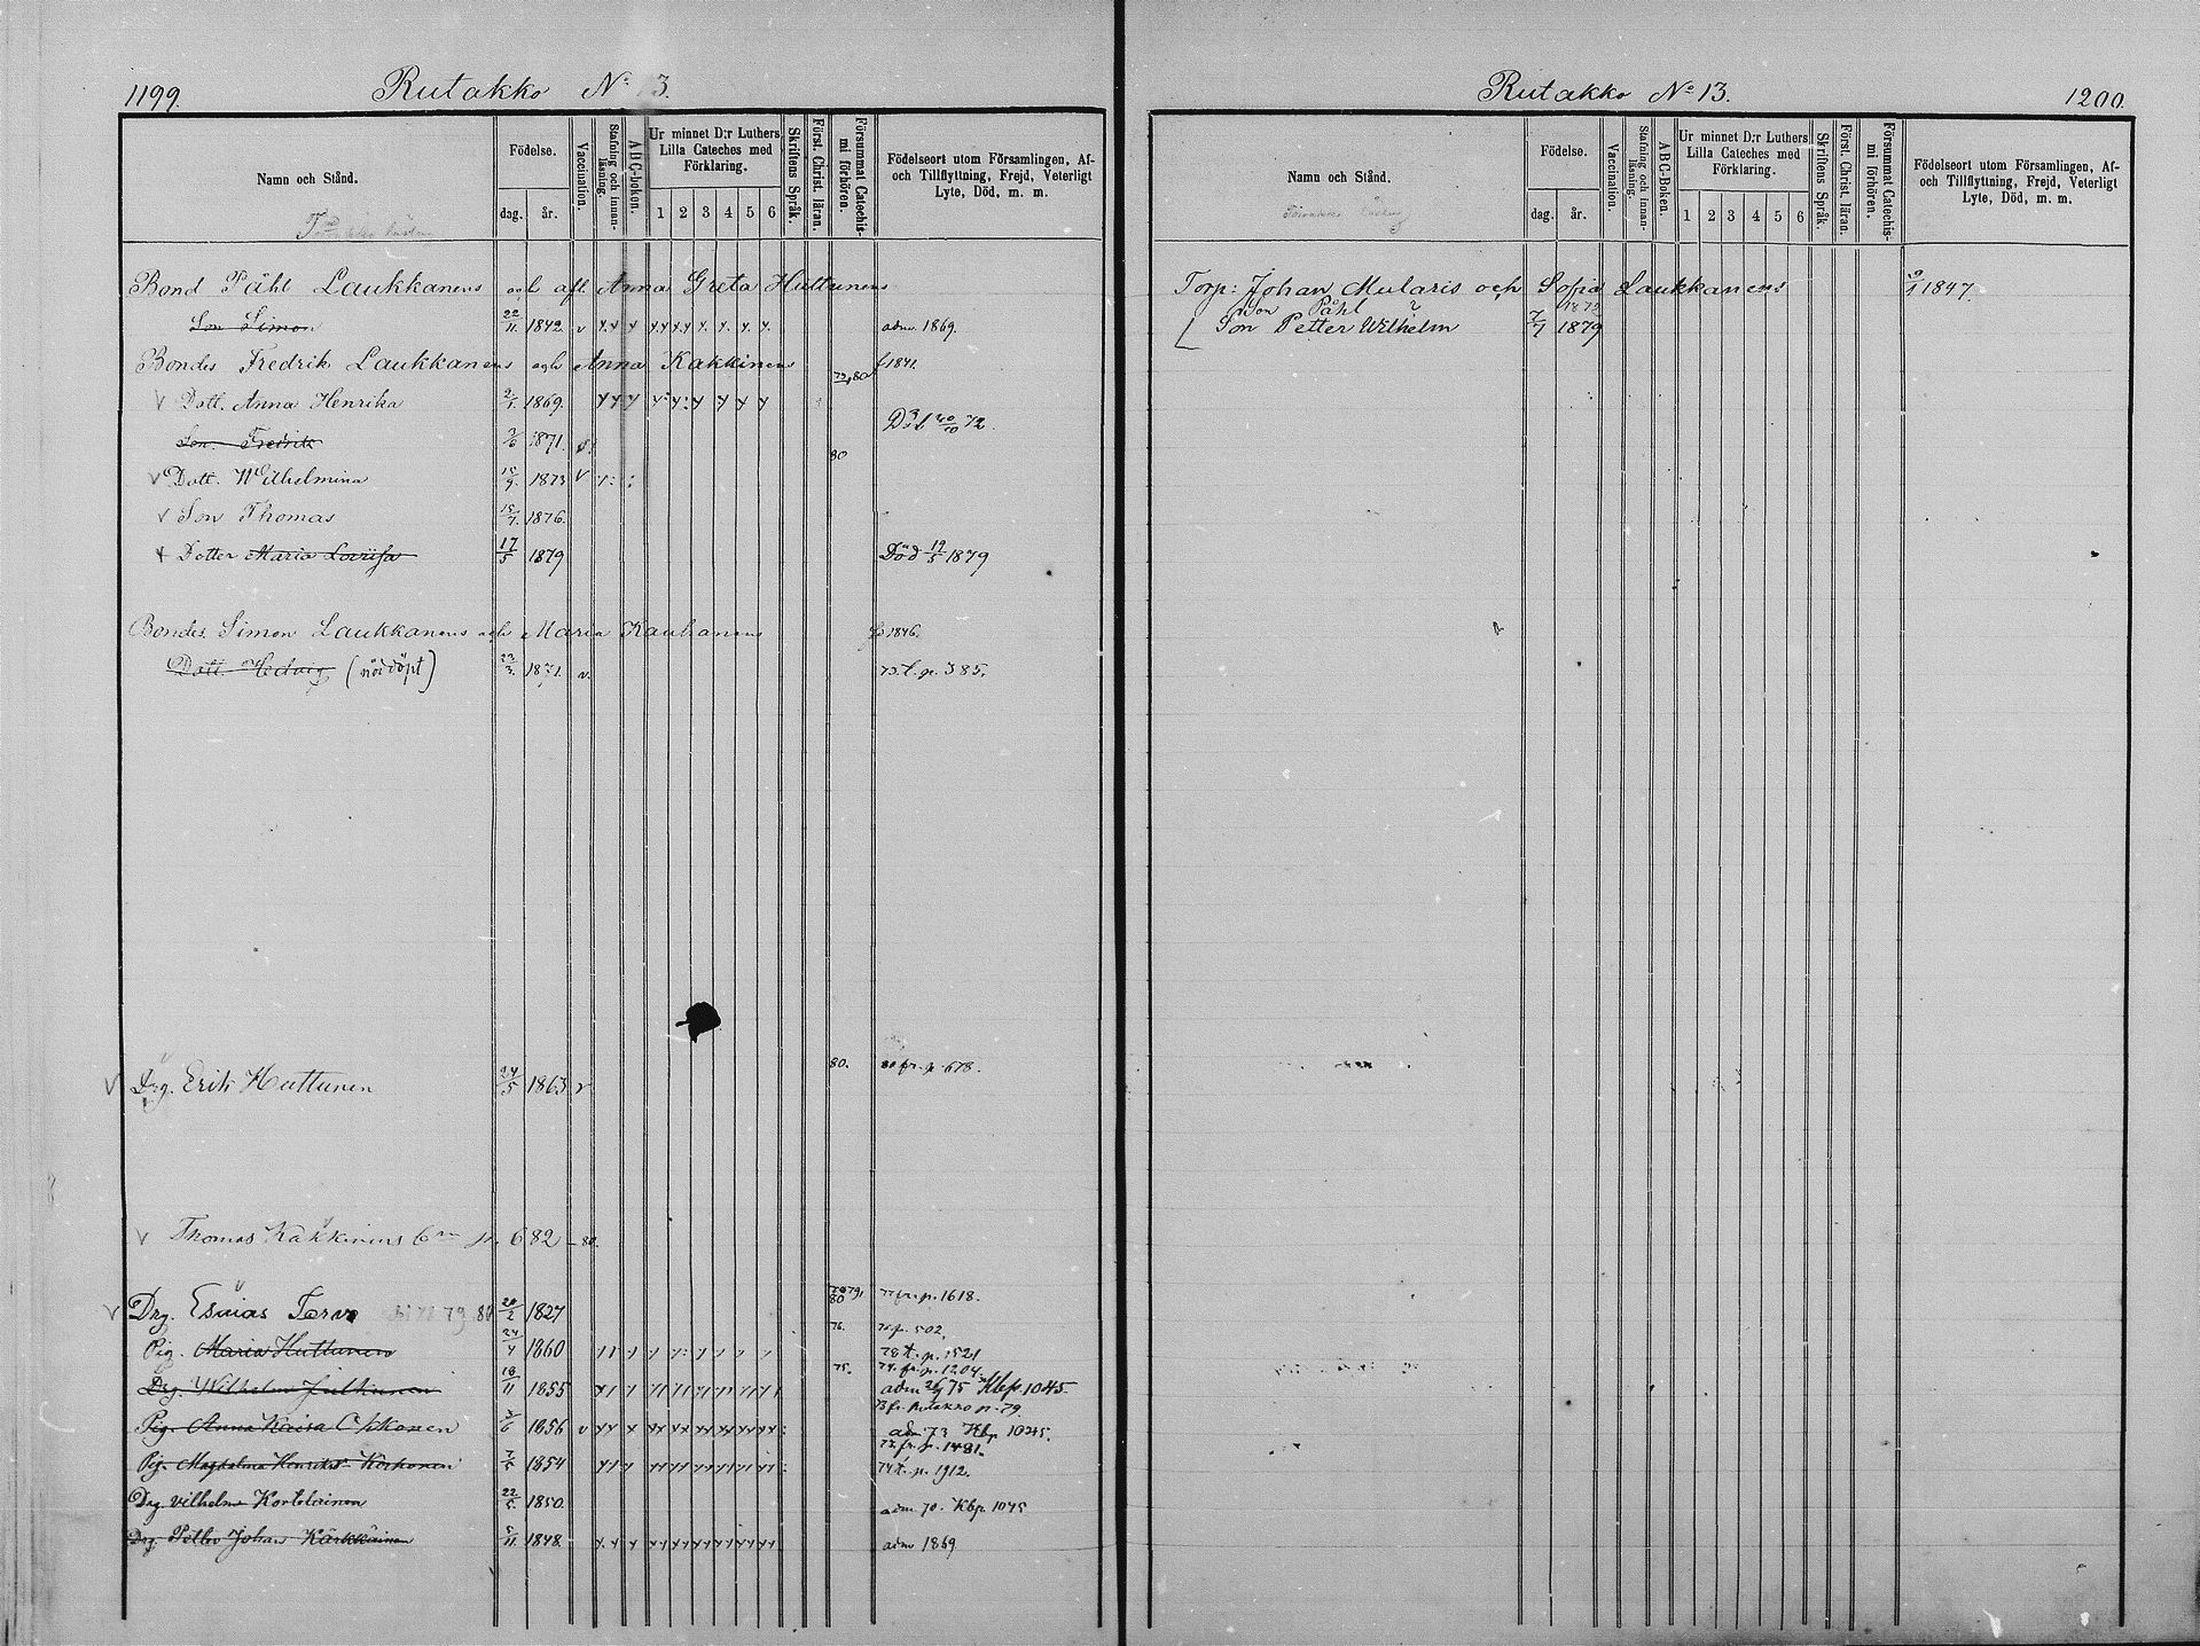 1199.
Rutakko No 13.
Namn och Stånd.
Födelse.
dag.
år.
Vaccination.
Stafning och innan-
läsning.
ABC-boken.
Ur minnet D:r Luthers
Lilla Cateches med
Förklaring.
1 2 3 4 5 6
Skriftens Språk.
Först. Christ. läran.
Försummat Catechis-
mi förhören.
Födelseort utom Församlingen, Af-
och Tillflyttning, Frejd, Veterligt
Lyte, Död, m. m.
Bond Påhl Laukkanens och afl. Anna Greta Huttunens
Son Simon 22/11 1842 v adm. 1869.
Bondes Fredrik Laukkanens och Anna Kakkinens f 1841.
v Dott. Anna Henrika 2/1. 1869. 79,80
Son Fredrik 1871.
v Dott. Wilhelmina 15/9. 1873 v 80
v Son Thomas 15/7. 1876.
Dotter Maria Lovisa 17/5 1879 Död 19/5 1879
Bondes Simon Laukkanens och Maria Kauhanens 1846.
Dott. Hedvig (nöddöpt) 1871. v. 73. t. p. 385.
v Drg. Erik Huttunen 24/5 1863 v 80. 80 fr. p. 678.
v Thomas Kakkinens 682 80.
v Drg. Esaias Tervo 79 80 20/2 1827 77 fr. p. 1618.
Pig. Maria Huttunen 24/4 1860 76. 76 p. 502.
78 t. p. 1521
Drg. Wilhelm Julkunen 18/11 1855 75. 74. fr. p. 1204.
adm 75 Kbp. 1045.
73 fr. Rutakko p. 79.
Pig. Anna Kaisa 1856 v adm 73 Kbp 1045.
72. fr. p. 1481.
Pig. Magdalena Henriksd. Korhonen 7/5 1854 74 t. p. 1912.
Drg Vilhelm Kortelainen 22/5. 1850. adm. 70. Kbp 1045
Drg. Petter Johan Kärkkäinen 5/11. 1848. adm 1869
Rutakko No 13.
1200.
Namn och Stånd.
Födelse.
dag.
år.
Vaccination.
Stafning och innan-
läsning.
ABC-Boken.
Ur minnet D:r Luthers
Lilla Cateches med
Förklaring.
1 2 3 4 5 6
Skriftens Språk.
Först. Christ. läran.
Försummat Catechis-
mi förhören.
Födelseort utom Församlingen, Af-
och Tillflyttning, Frejd, Veterligt
Lyte, Död, m. m.
Torp: Johan Mularis och Sofia Laukkanens 9/1 1847.
Son Påhl 1872
Son Petter Wilhelm 7/7 1879